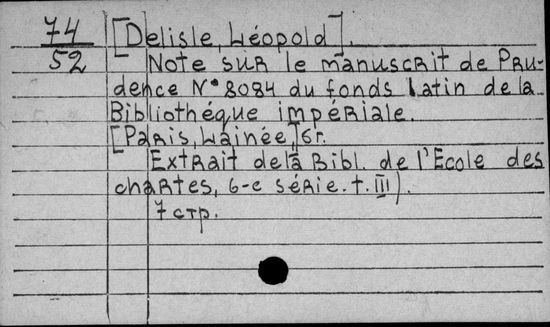 74
52
[Delisle, Léopold].
Note sur le manuscrit de Pru-
dence N° 8084 du fonds latin de la
Bibliothéque impériale.
[Paris, Lainée,] бг.
Extrait de la Bibl. de l'Ecole des
chartes, 6-e série. t. III).
7 стр.